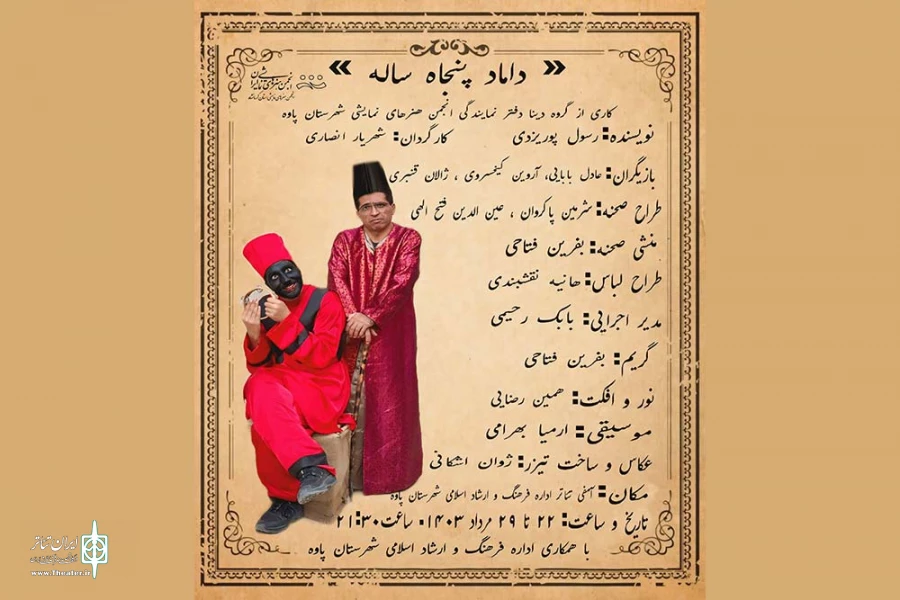 « داماد پنجاه ساله »
انجمن هنرهای نمایشی ایران
کاری از گروه دینا دفتر نمایندگی انجمن هنرهای نمایشی شهرستان پاوه
نویسنده: رسول پوریزدی کارگردان: شهریار انصاری
بازیگران: عادل بابایی، آروین کیخسروی ، ژالان قنبری
طراح صحنه: شرمین پاکروان ، عین الدین فتح الهی
منشی صحنه: بفرین فتاحی
طراح لباس: هانیه نقشبندی
مدیر اجرایی: بابک رحیمی
گریم: بفرین فتاحی
نور و افکت: همین رضایی
موسیقی: ارمیا بهرامی
عکاس و ساخت تیزر: ژوان اشکانی
مکان: آمفی تئاتر اداره فرهنگ و ارشاد اسلامی شهرستان پاوه
تاریخ و ساعت: ۲۲ تا ۲۹ مرداد ۱۴۰۳. ساعت ۲۱:۳۰
با همکاری اداره فرهنگ و ارشاد اسلامی شهرستان پاوه
ایران تئاتر
www.theater.ir